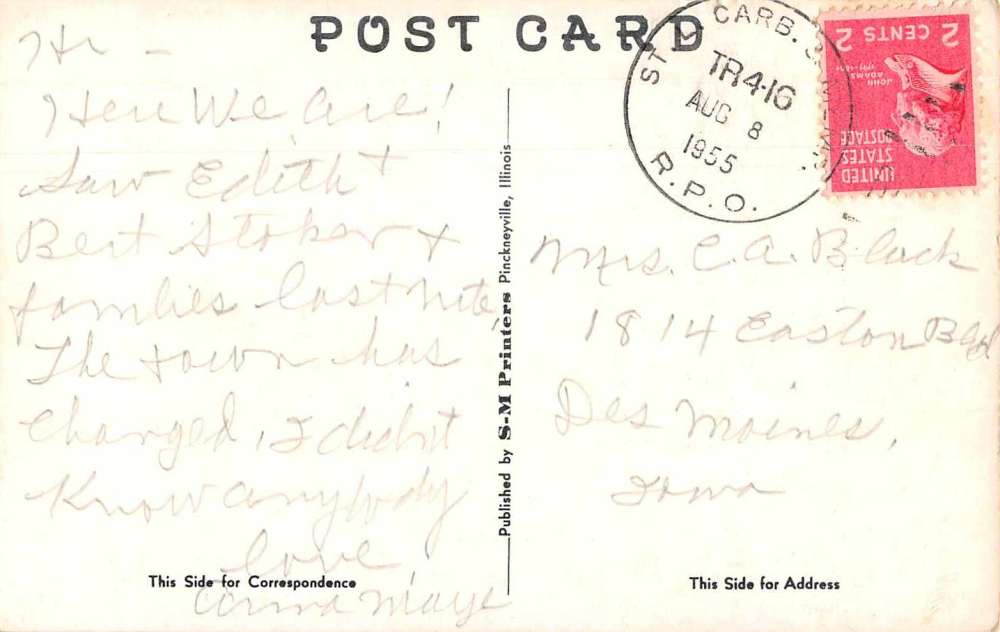 POST CARD
Hi -
Here We Are!
Saw Edith +
Bert Stoker +
families last nite,
The town has
changed, I didn't
Know anybody
love,
Maye
This Side for Correspondence
Published by S-M Printers Pinckneyville, Illinois
ST. CARB.
TR.4-16
AUG 8
1955
R.P.O.
2 CENTS 2
JOHN
ADAMS
UNITED
STATES
POSTAGE
Mrs. C. A. Black
1814 Easton Blvd
Des Moines,
Iowa
This Side for Address